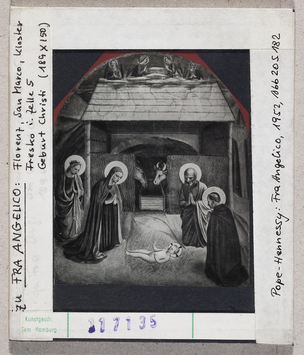 zu FRA ANGELICO:
Florenz, San Marco, Kloster
Fresko i. Zelle 5
Geburt Christi (189 X 150)
Pope-Hennessy: Fra Angelico, 1952, 166 205 182
Kunstgesch.
Sem. Hamburg
31735